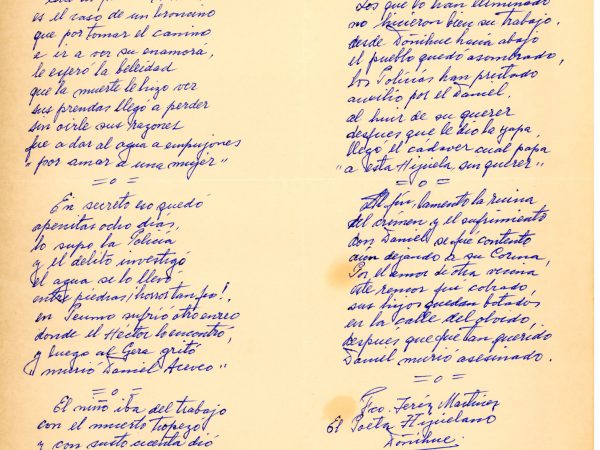 es el caso de un broncino
que por tomar el camino
e ir a ver su enamorá,
le esperó la beleidad
que la muerte le hizo ver
sus prendas llegó a perder
sin oirle sus razones
fue a dar al agua a empujones
"por amar a una mujer"
= o =
En secreto eso quedó
apenitas ocho días,
lo supo la Policía
y el delito investigó
el agua se lo llevó
entre piedras,
en Peumo sufrió otro enreo
donde el Héctor lo encontró,
y luego al Gera gritó
"murió Daniel Aceveo"
= o =
El niño iba del trabajo
con el muerto tropezó
y con susto cuenta dió
Los que lo han eliminado
no hicieron bien su trabajo,
desde Doñihue hacia abajo
el pueblo quedó asombrado,
los Policías han prestado
auxilio por el Daniel.
al huir de su querer
despues que le dio la yapa,
llegó el cadáver cual papa
"a esta Hijuela, sin querer"
= o =
Al fin, lamento la ruina
del crímen y el sufrimiento
don Daniel se fué contento
aún dejando a su Corina,
Por el amor de otra vecina
este remor fué cobrado,
sus hijos quedan botados
en la calle del olvido,
despues que fué tan querido
Daniel murió asesinado.
= o =
Fco. Jeréz Martínez
El Poeta Hijuelano
Doñihue.